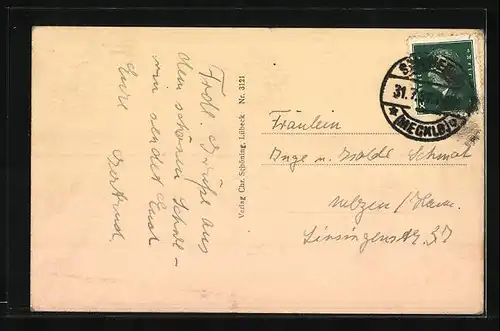 Frdl. Grüße aus
dem schönen
sendet Euch
Eure Gertrud.
Verlag Chr. Schöning, Lübeck Nr. 3121
31.7
(MECKLB)
Fräulein
Inge u. Isolde Schmat
Uelzen / Hann.
Linsingenstr. 37